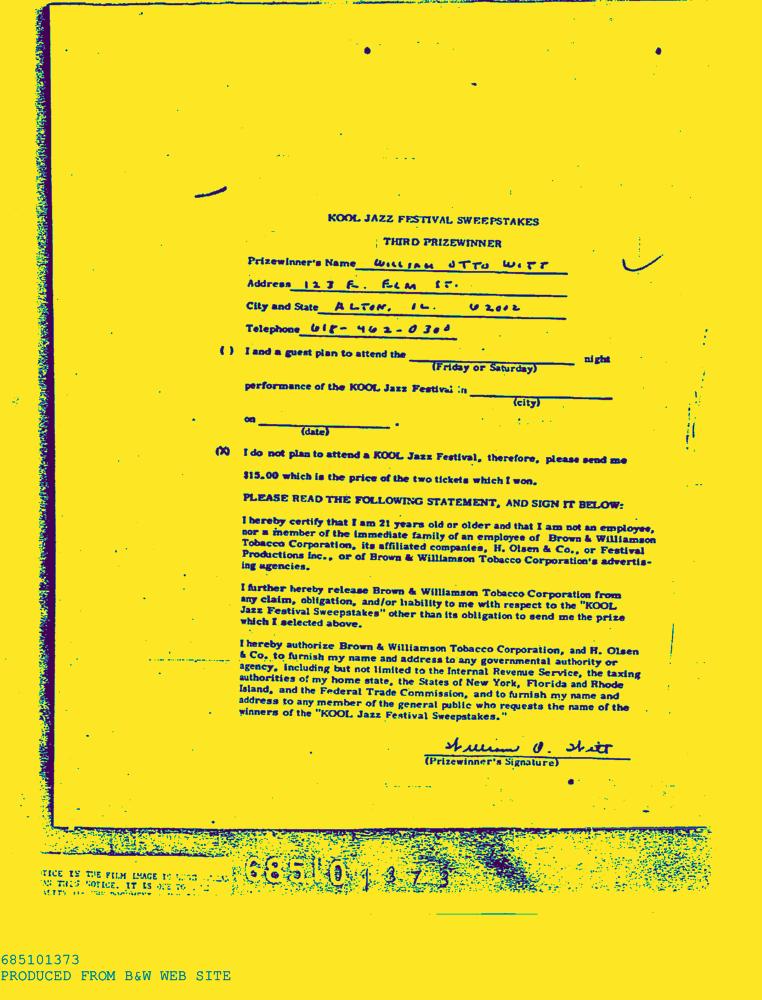 KOOL JAZZ FESTIVAL SWEEPSTAKES
THIRD PRIZEWINNER
Prizewinner's Name WILLIAM OTTO WITT
Address 123 E. ELM ST.
City and State ALTON, IL. 62002
Telephone 618-462-0300
( ) I and a guest plan to attend the night
(Friday or Saturday)
performance of the KOOL Jazz Festival in
(city)
on .
(date)
(X) I do not plan to attend a KOOL Jazz Festival, therefore, please send me
$15.00 which is the price of the two tickets which I won.
PLEASE READ THE FOLLOWING STATEMENT, AND SIGN IT BELOW:
I hereby certify that I am 21 years old or older and that I am not an employee,
nor a member of the immediate family of an employee of Brown & Williamson
Tobacco Corporation, its affiliated companies, H. Olsen & Co., or Festival
Productions Inc., or of Brown & Williamson Tobacco Corporation's advertis-
ing agencies.
I further hereby release Brown & Williamson Tobacco Corporation from
any claim, obligation, and/or liability to me with respect to the "KOOL
Jazz Festival Sweepstakes" other than its obligation to send me the prize
which I selected above.
I hereby authorize Brown & Williamson Tobacco Corporation, and H. Olsen
& Co. to furnish my name and address to any governmental authority or
agency, including but not limited to the Internal Revenue Service, the taxing
authorities of my home state, the States of New York, Florida and Rhode
Island, and the Federal Trade Commission, and to furnish my name and
address to any member of the general public who requests the name of the
winners of the "KOOL Jazz Festival Sweepstakes."
William O. Witt
(Prizewinner's Signature)
685101373
TICE IS THE FILM IMAGE IS
THIS NOTICE, IT IS
685101373
PRODUCED FROM B&W WEB SITE